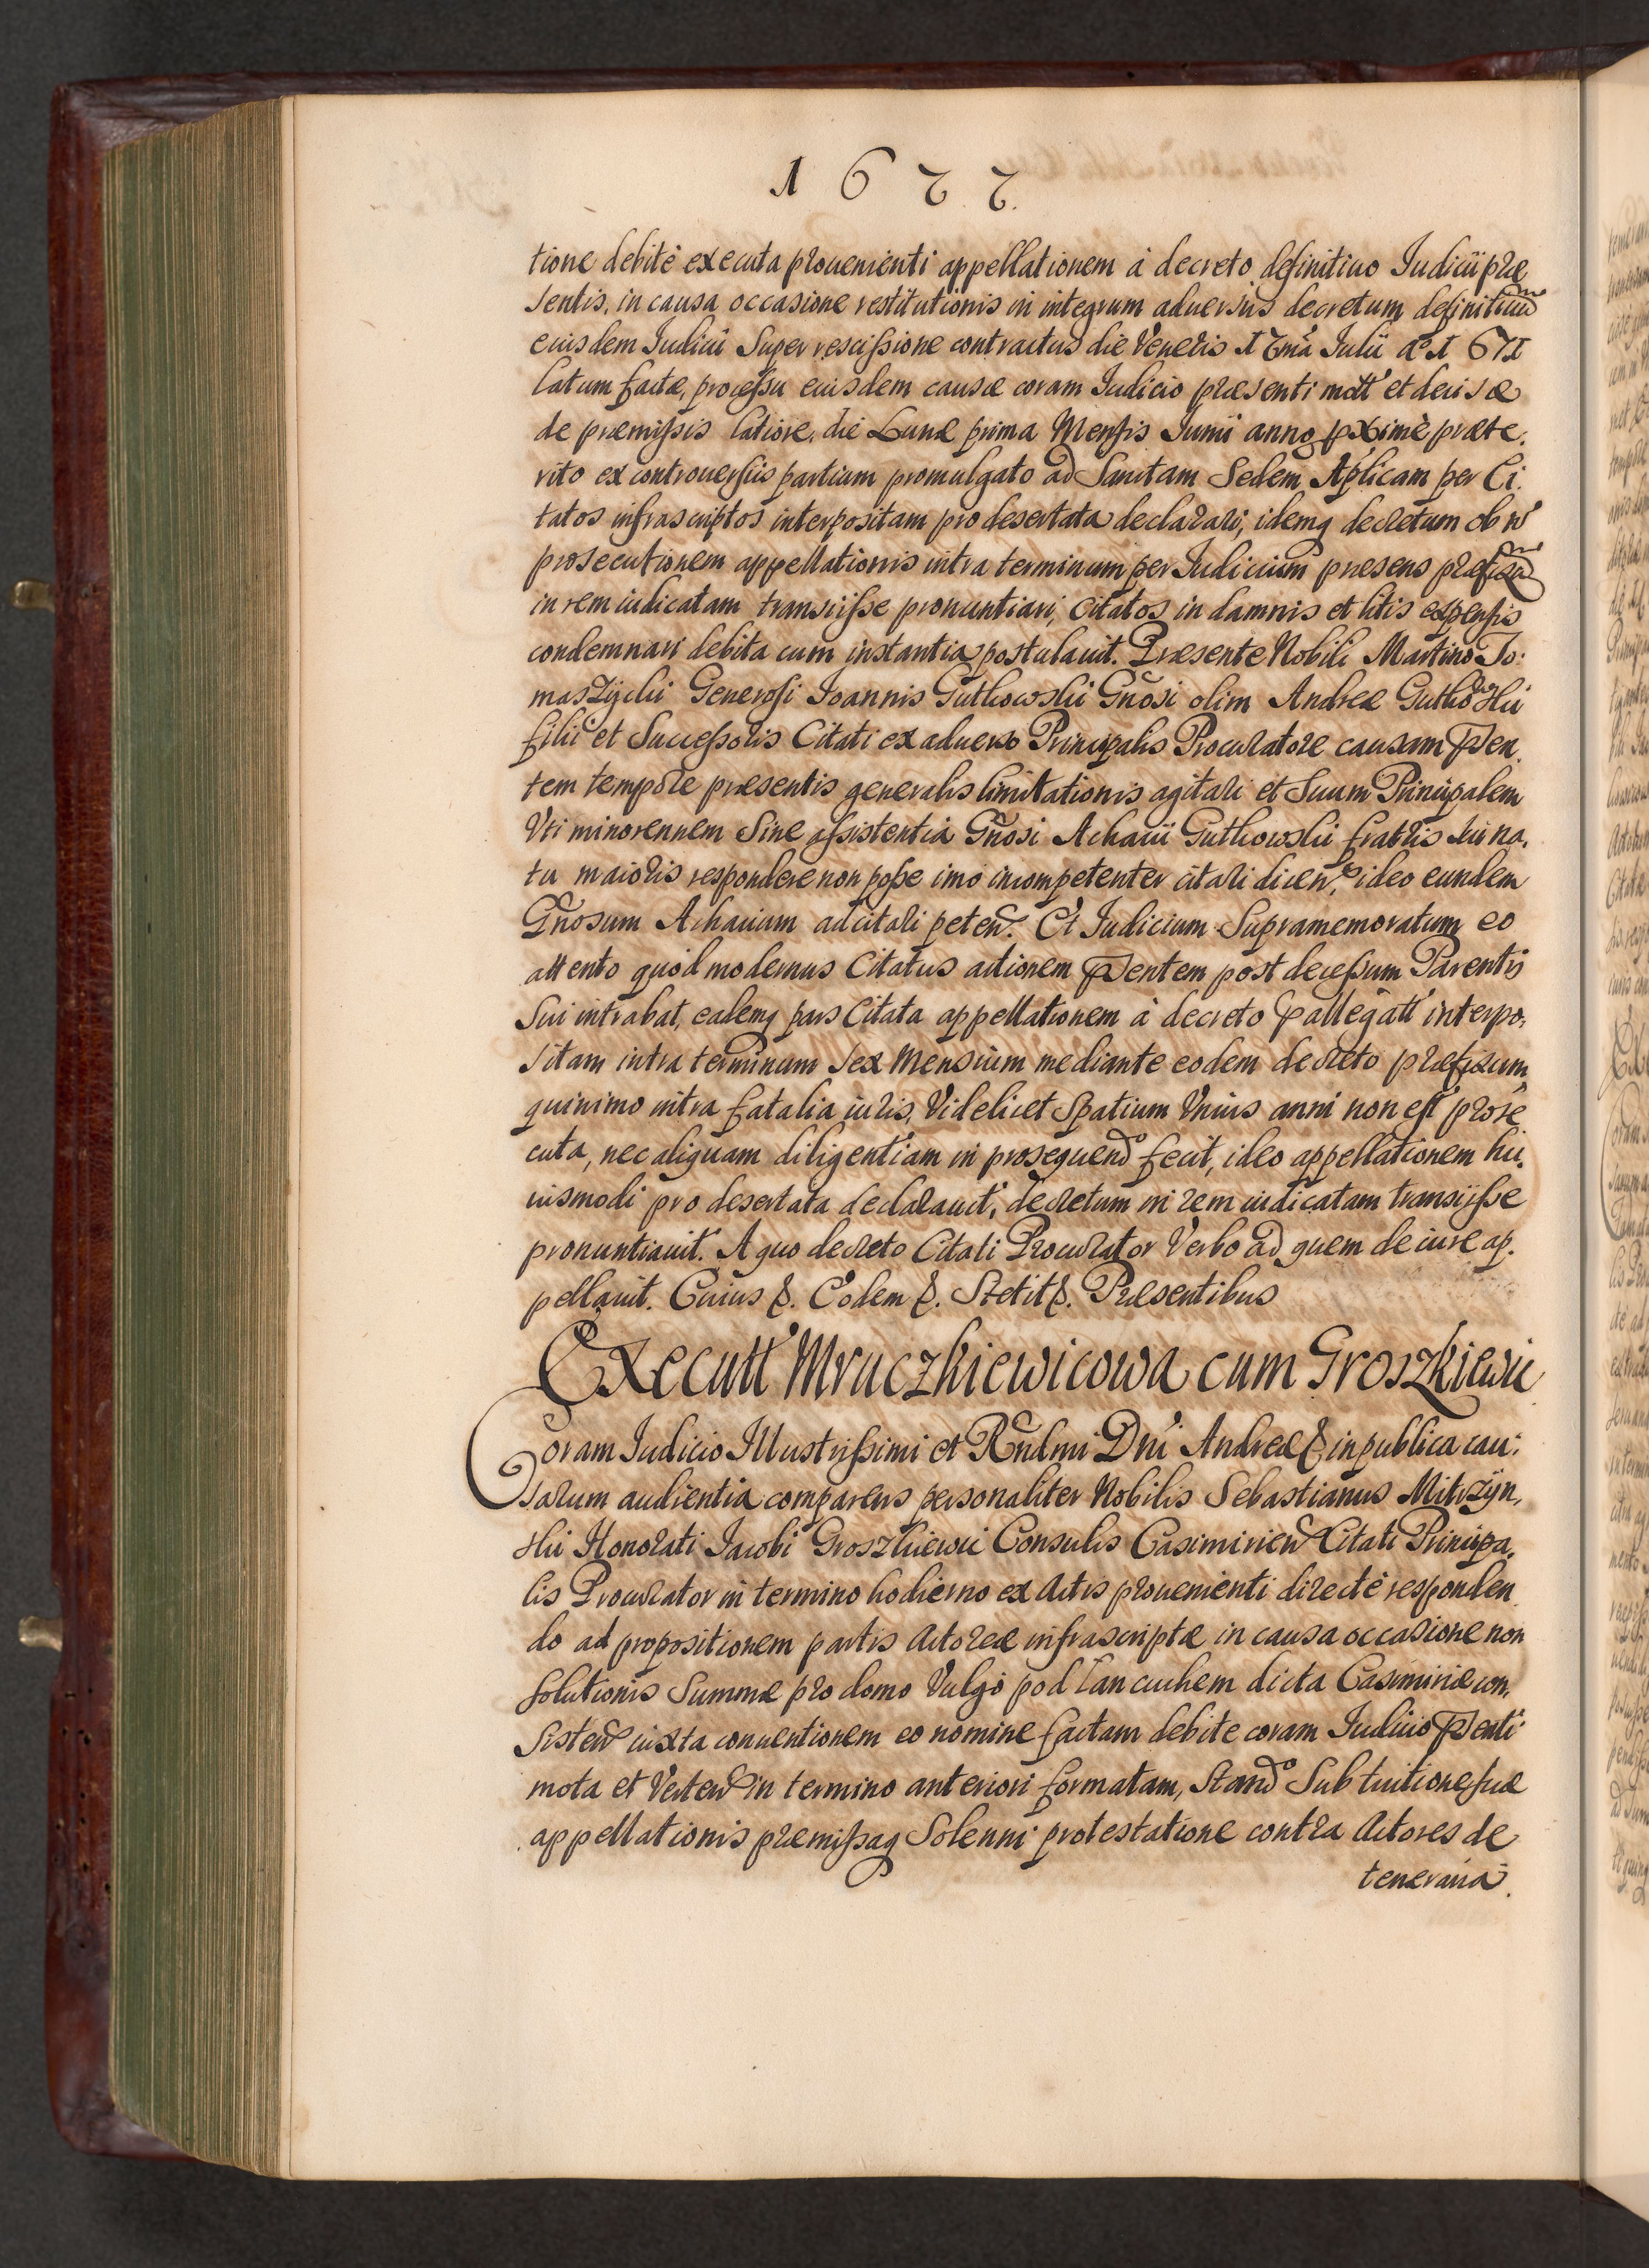 1677.
tione debitè executa prouenienti appellationem à decreto definitiuo Iudicii præ
sentis, in causa occasione restitutionis in integrum aduersus decretum definitiuũ
eiusdem Iudicii super rescissione contractus die Veneris 17ma Iulii aº 1671
latum factæ, processu eiusdem causæ coram Iudicio præsenti mott' et decisæ
de præmissis latiore, die Lunæ prima Mensis Iunii anno pxime præte.
rito ex controuersiis partium promulgato ad Sanctam Sedem Aplicam per Ci.
tatos infrascriptos interpositam pro desertata declarari, idemq decretum ob nō
prosecutionem appellationis intra terminum per Iudicium præsens præfixũ
in rem iudicatam transiisse pronuntiari, Citatos in damnis et litis expensis
condemnari debita cum instantia postulauit. Præsente Nobili Martino To:
maszycki Generosi Ioannis Gutkowski Gnosi olim Andreæ Gutkowski
filii et Successoris Citati ex aduerso Principalis Procuratore causam psen
tem tempore præsentis generalis limitationis agitari et Suum Principalem
Vti minorennem Sine assistentia Gnosi Achacii Gutkowski fratris sui na.
tu maioris respondere non posse imo incompetenter citari dicen, ideo eundem
Gnosum Achacium adcitari peten. Et Iudicium Supramemoratum eo
attento quod modernus Citatus actionem psentem post decessum Parentis
Sui intrabat, eademq pars Citata appellationem à decreto pallegatt' interpo.
sitam intra terminum sex Mensium mediante eodem decreto præfixum
quinimo intra fatalia iuris, Videlicet Spatium Vnius anni non est prose
cuta, nec aliquam diligentiam in prosequendº fecit, ideo appellationem hu.
iusmodi pro desertata declarauit, decretum in rem iudicatam transiisse
pronuntiauit. A quo decreto Citati Procurator Verbo ad quem de iure ap.
pellauit. Cuius &. Eodem &. Stetit &. Præsentibus
Executt' Mruczkiewicowa cum Groszkiewic
Coram Iudicio Illustrissimi et Rndmi Dni Andreæ & in publica cau:
sarum audientia comparens personaliter Nobilis Sebastianus Mitrzyn.
ski Honorati Iacobi Groszkiewic Consulis Casimirien Citati Principa.
lis Procurator in termino hodierno ex Actis prouenienti directè responden
do ad propositionem partis Actoreæ infrascriptæ in causa occasione non
solutionis Summæ pro domo Vulgo pod Lancuchem dicta Casimiriæ con.
sisten iuxta conuentionem eo nomine factam debite coram Iudicio psenti
mota et Verten in termino anteriori formatam, Standº Sub tuitione suæ
appellationis præmissaq Solenni protestatione contra Actores de